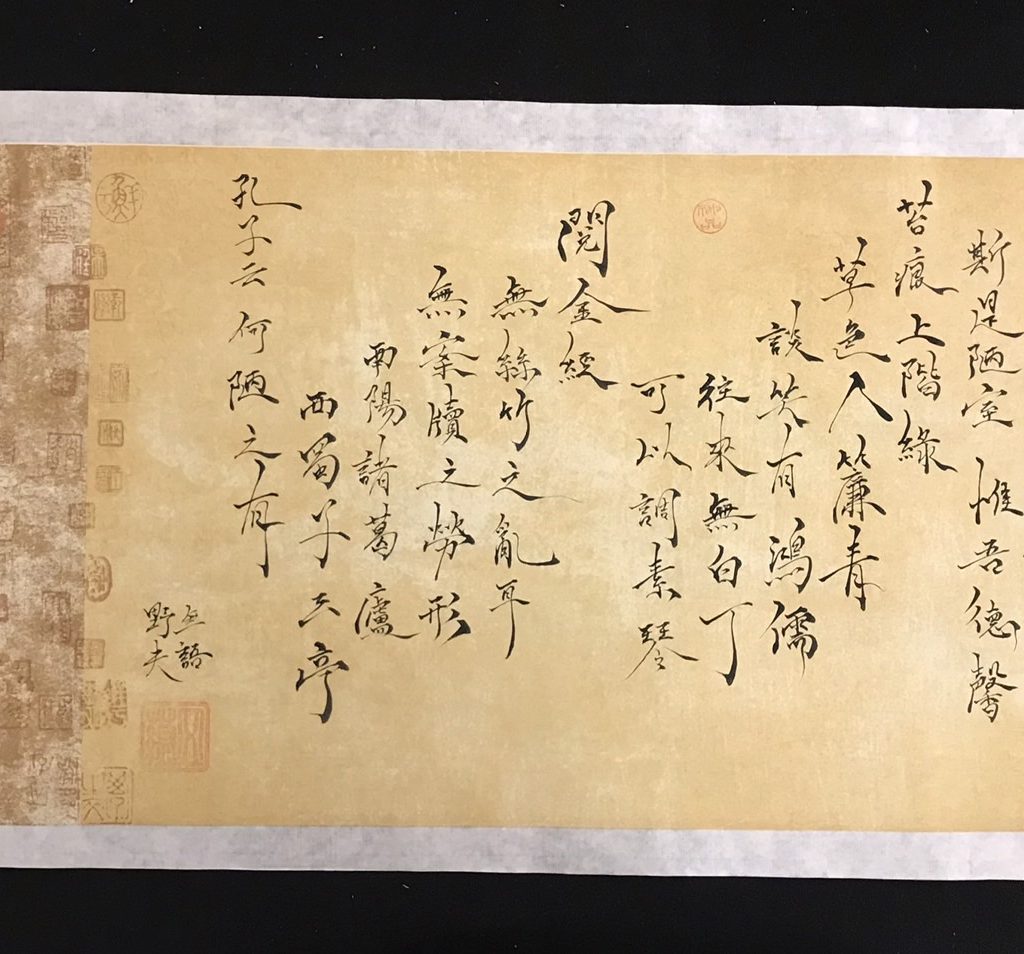 斯是陋室惟吾德馨
苔痕上階綠
草色入簾青
談笑有鴻儒
往來無白丁
可以調素琴
閱金經
無絲竹之亂耳
無案牘之勞形
南陽諸葛廬
西蜀子云亭
孔子云何陋之有
無語
野夫